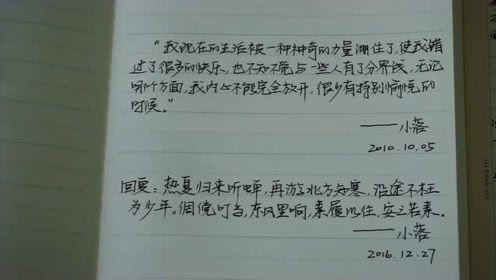 “我现在的生活被一种神奇的力量溯住了,使我错
过了很多的快乐,也不知不觉与一些人有了分界线,无论
哪个方面,我内心不能完全放开,很少有特别愉悦的
时候。”
——小蓉
2010.10.05
回复:热夏归来听蝉,再游北方知寒,沿途不枉
为少年。倜傥叮当,东风里响,素履以往,安之若素。
——小蓉
2016.12.27